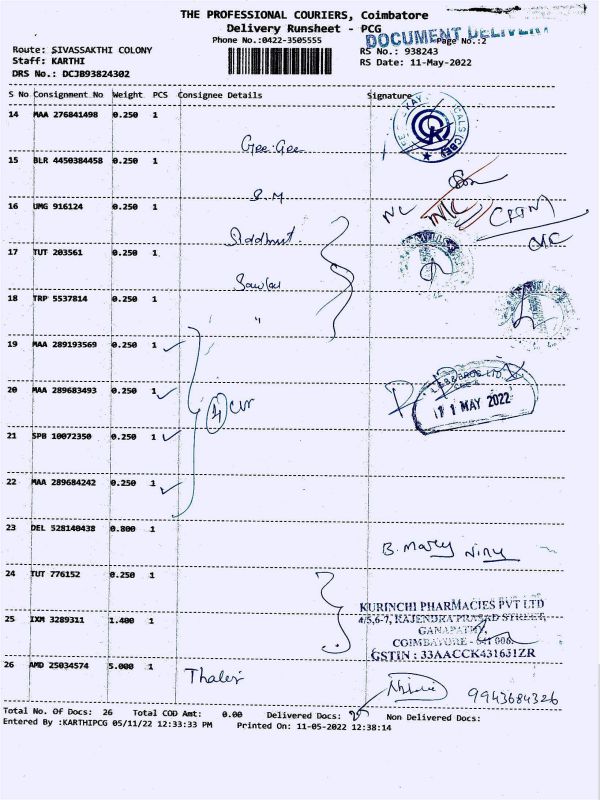 THE PROFESSIONAL COURIERS, Coimbatore
Delivery Runsheet - PCG
Phone No.:0422-3505555
DOCUMENT DELIVERY
Page No.:2
Route: SIVASSAKTHI COLONY
RS No.: 938243
Staff: KARTHI
RS Date: 11-May-2022
DRS No.: DCJB93824302
S No Consignment No Weight PCS Consignee Details Signature
14 MAA 276841498 0.250 1
Gee Gee
15 BLR 4450384458 0.250 1
S.M
16 UMG 916124 0.250 1
17 TUT 203561 0.250 1
18 TRP 5537814 0.250 1
"
19 MAA 289193569 0.250 1
20 MAA 289683493 0.250 1
4
11 MAY 2022
21 SPB 10072350 0.250 1
22 MAA 289684242 0.250 1
23 DEL 528140438 0.800 1
B. Mary
24 TUT 776152 0.250 1
KURINCHI PHARMACIES PVT LTD
4/5,6-7, RAJENDRA PRASAD STREET,
25 IXM 3289311 1.400 1
GANAPATHY,
COIMBATORE - 641 006.
GSTIN : 33AACCK4316
26 AMD 25034574 5.000 1
9943684326
Total No. Of Docs: 26 Total COD Amt: 0.00 Delivered Docs: Non Delivered Docs:
Entered By :KARTHIPCG 05/11/22 12:33:33 PM Printed On: 11-05-2022 12:38:14